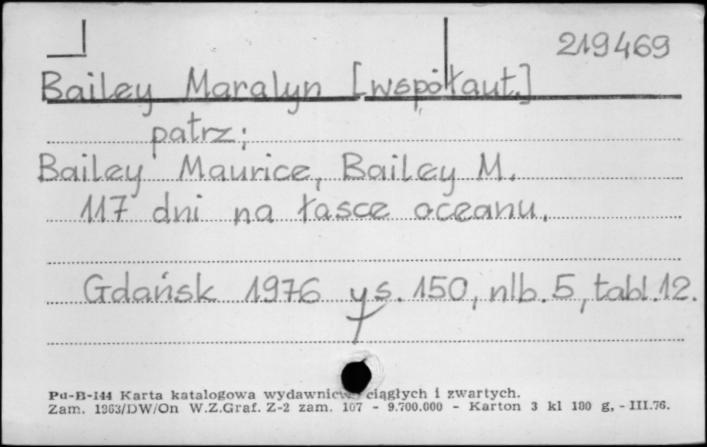 219469
Bailey Maralyn [współaut.]
patrz;
Bailey Maurice, Bailey M.
117 dni na łasce oceanu.
Gdańsk 1976 ys. 150, nlb. 5, tabl. 12.
Pu-B-144 Karta katalogowa wydawnictw ciągłych i zwartych.
Zam. 1963/DW/On W.Z.Graf. Z-2 zam. 107 - 9.700.000 - Karton 3 kl 180 g, - III.76.